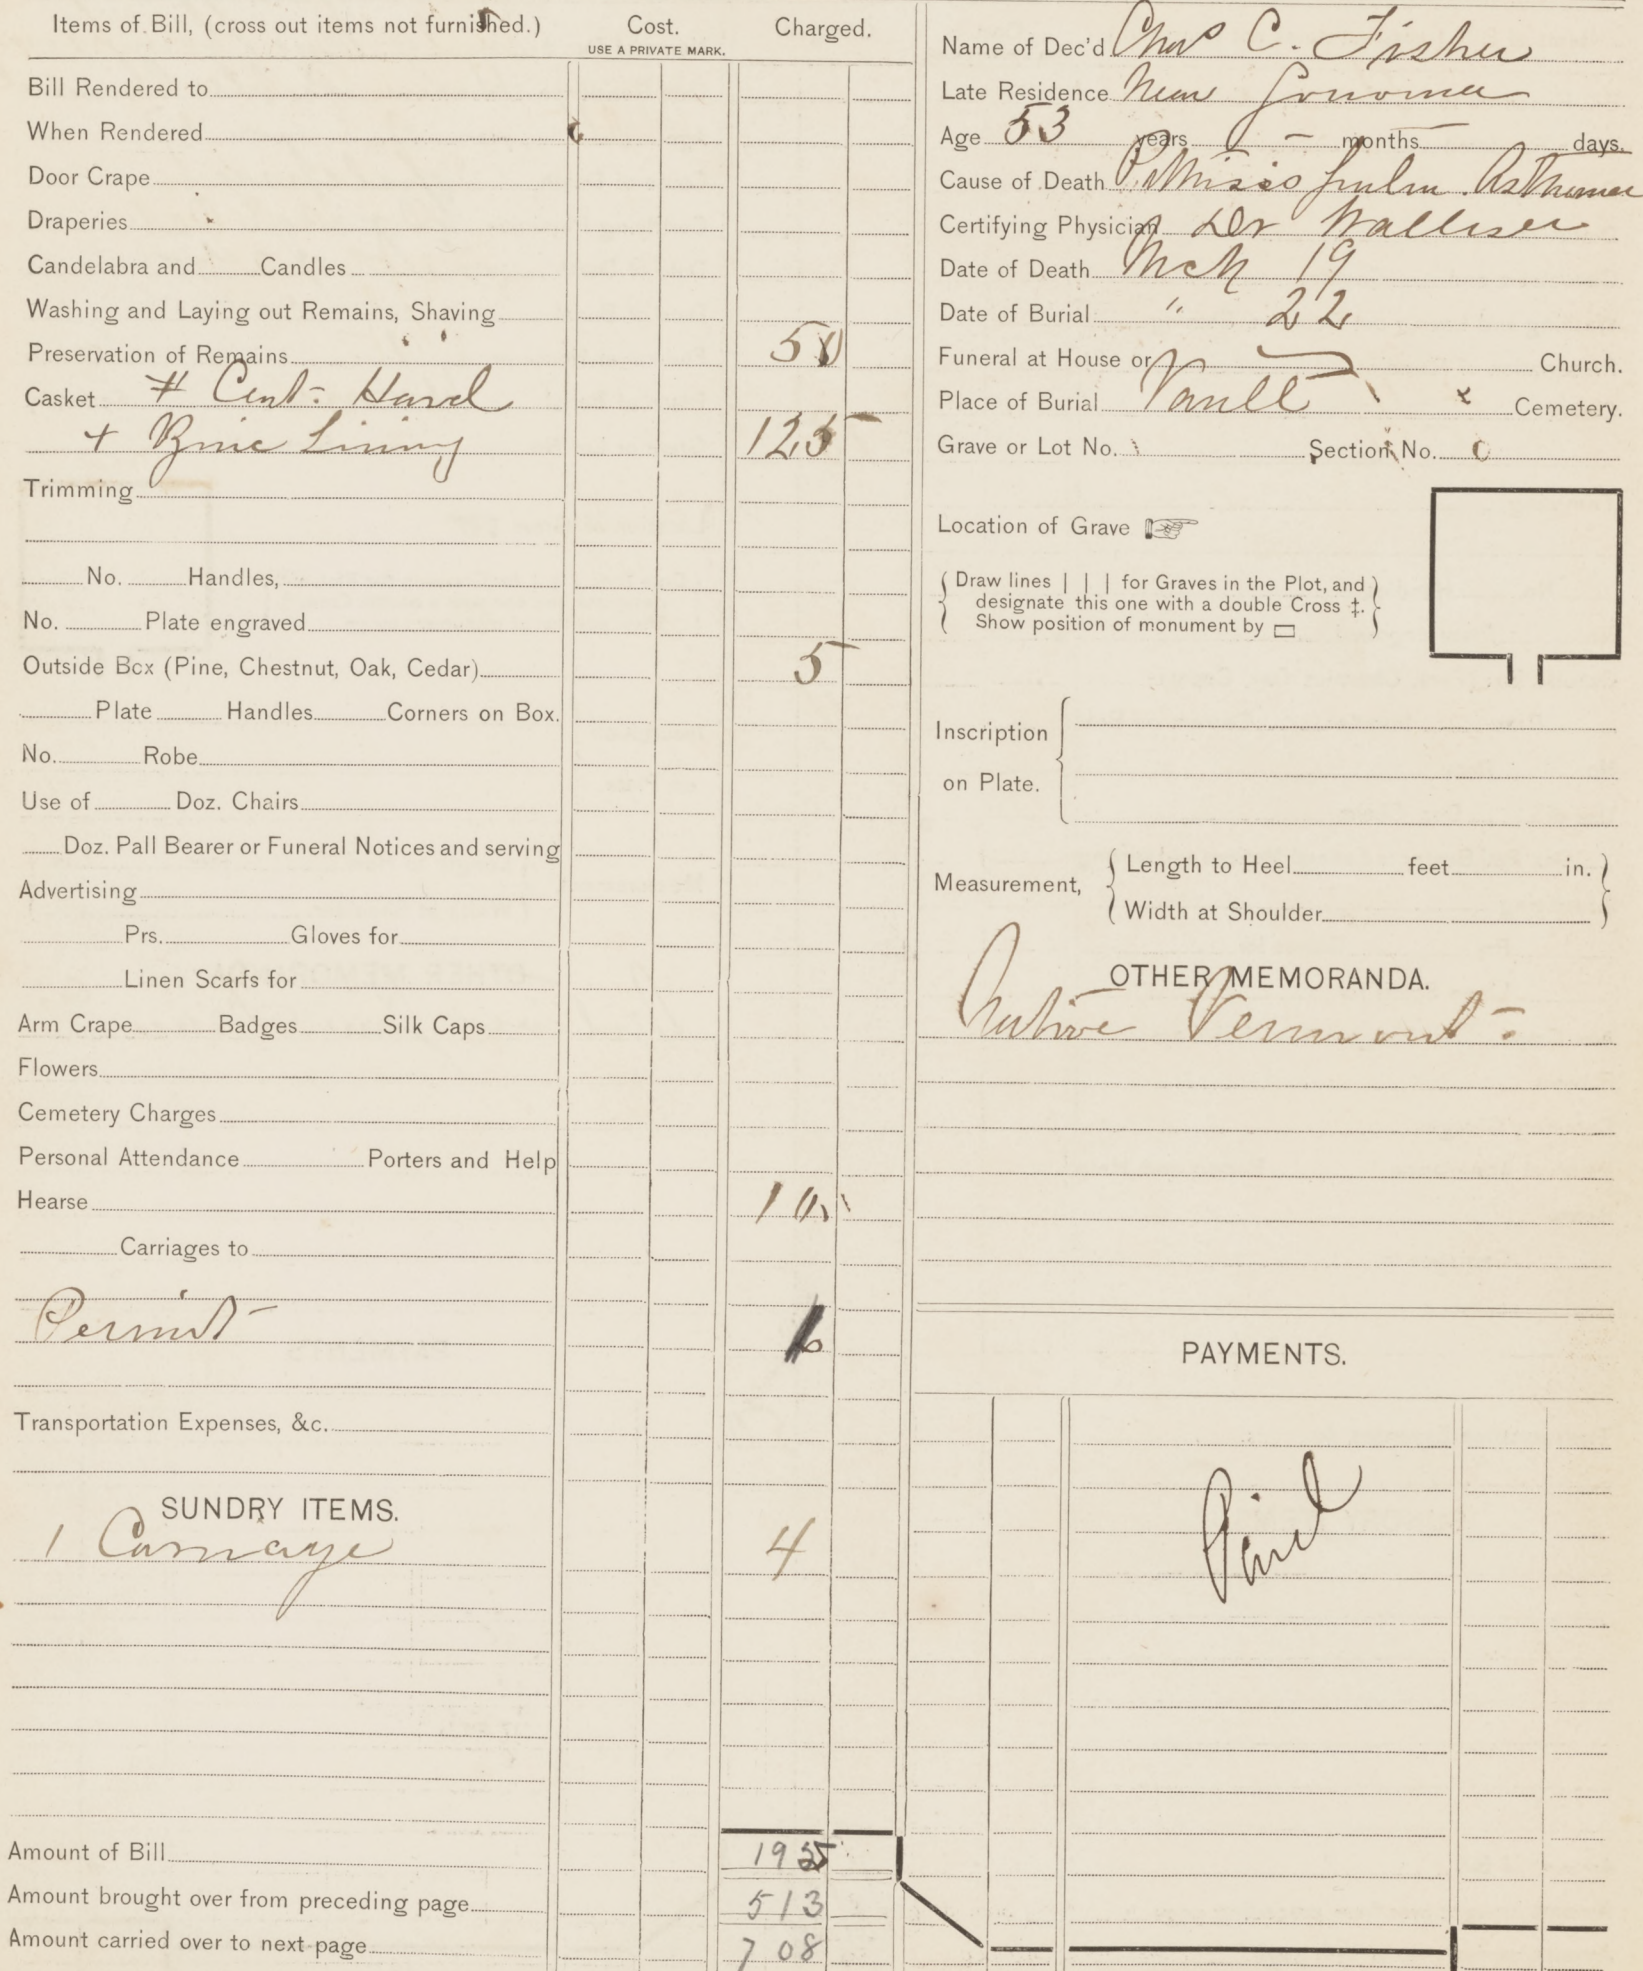 Items of Bill, (cross out items not furnished.) Cost. Charged.
USE A PRIVATE MARK.
Bill Rendered to
When Rendered
Door Crape
Draperies
Candelabra and Candles
Washing and Laying out Remains, Shaving
Preservation of Remains 50
Casket # Cent. Hard
+ Zinc Lining 125
Trimming
No. Handles,
No. Plate engraved
Outside Box (Pine, Chestnut, Oak, Cedar) 5
Plate Handles Corners on Box.
No. Robe
Use of Doz. Chairs
Doz. Pall Bearer or Funeral Notices and serving
Advertising
Prs. Gloves for
Linen Scarfs for
Arm Crape Badges Silk Caps
Flowers
Cemetery Charges
Personal Attendance Porters and Help
Hearse 10
Carriages to
Permit 1
Transportation Expenses, &c.
SUNDRY ITEMS.
1 Carriage 4
Amount of Bill 195
Amount brought over from preceding page 513
Amount carried over to next page 708
Name of Dec'd Chas C. Fisher
Late Residence Near Sonoma
Age 53 years - months - days.
Cause of Death Pthisis pulm. Asthma
Certifying Physician Dr
Date of Death Mch 19
Date of Burial " 22
Funeral at House or Church.
Place of Burial Vault Cemetery.
Grave or Lot No. Section No.
Location of Grave
Draw lines | | | for Graves in the Plot, and
designate this one with a double Cross ‡.
Show position of monument by ▭
Inscription
on Plate.
Measurement, Length to Heel feet in.
Width at Shoulder
OTHER MEMORANDA.
Native Vermont
PAYMENTS.
Paid